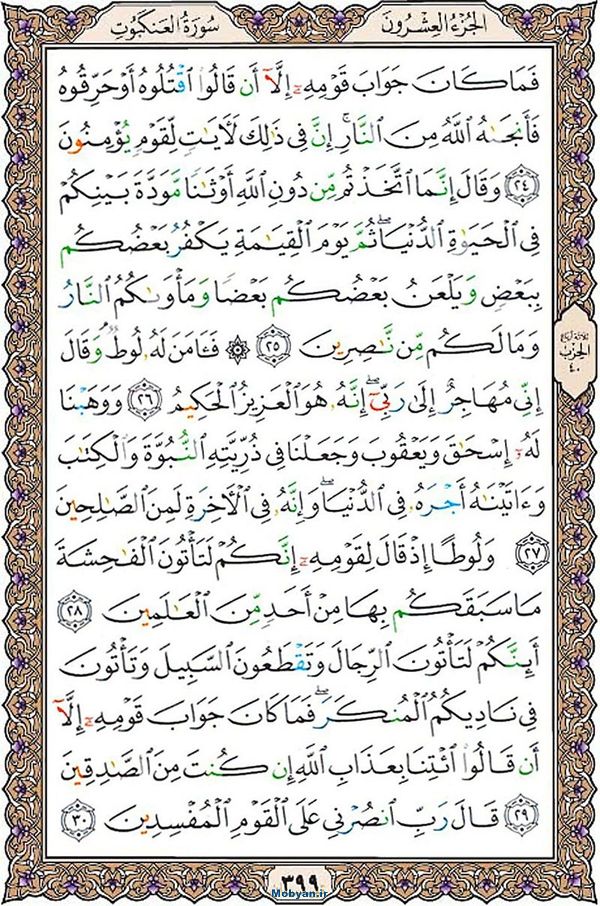 الجزء العشرون
سورة العنكبوت
فَمَا كَانَ جَوَابَ قَوْمِهِۦٓ إِلَّآ أَن قَالُوا۟ ٱقْتُلُوهُ أَوْ حَرِّقُوهُ
فَأَنجَىٰهُ ٱللَّهُ مِنَ ٱلنَّارِ ۚ إِنَّ فِى ذَٰلِكَ لَءَايَٰتٍ لِّقَوْمٍ يُؤْمِنُونَ
﴿٢٤﴾ وَقَالَ إِنَّمَا ٱتَّخَذْتُم مِّن دُونِ ٱللَّهِ أَوْثَٰنًا مَّوَدَّةَ بَيْنِكُمْ
فِى ٱلْحَيَوٰةِ ٱلدُّنْيَا ۖ ثُمَّ يَوْمَ ٱلْقِيَٰمَةِ يَكْفُرُ بَعْضُكُم
بِبَعْضٍ وَيَلْعَنُ بَعْضُكُم بَعْضًا وَمَأْوَىٰكُمُ ٱلنَّارُ
وَمَا لَكُم مِّن نَّٰصِرِينَ ﴿٢٥﴾ ۞ فَـَٔامَنَ لَهُۥ لُوطٌ ۘ وَقَالَ
إِنِّى مُهَاجِرٌ إِلَىٰ رَبِّىٓ ۖ إِنَّهُۥ هُوَ ٱلْعَزِيزُ ٱلْحَكِيمُ ﴿٢٦﴾ وَوَهَبْنَا
لَهُۥٓ إِسْحَٰقَ وَيَعْقُوبَ وَجَعَلْنَا فِى ذُرِّيَّتِهِ ٱلنُّبُوَّةَ وَٱلْكِتَٰبَ
وَءَاتَيْنَٰهُ أَجْرَهُۥ فِى ٱلدُّنْيَا ۖ وَإِنَّهُۥ فِى ٱلْءَاخِرَةِ لَمِنَ ٱلصَّٰلِحِينَ
﴿٢٧﴾ وَلُوطًا إِذْ قَالَ لِقَوْمِهِۦٓ إِنَّكُمْ لَتَأْتُونَ ٱلْفَٰحِشَةَ
مَا سَبَقَكُم بِهَا مِنْ أَحَدٍ مِّنَ ٱلْعَٰلَمِينَ ﴿٢٨﴾
أَئِنَّكُمْ لَتَأْتُونَ ٱلرِّجَالَ وَتَقْطَعُونَ ٱلسَّبِيلَ وَتَأْتُونَ
فِى نَادِيكُمُ ٱلْمُنكَرَ ۖ فَمَا كَانَ جَوَابَ قَوْمِهِۦٓ إِلَّآ
أَن قَالُوا۟ ٱئْتِنَا بِعَذَابِ ٱللَّهِ إِن كُنتَ مِنَ ٱلصَّٰدِقِينَ
﴿٢٩﴾ قَالَ رَبِّ ٱنصُرْنِى عَلَى ٱلْقَوْمِ ٱلْمُفْسِدِينَ ﴿٣٠﴾
الحزب
٤٠
٣٩٩
Mobyan.ir